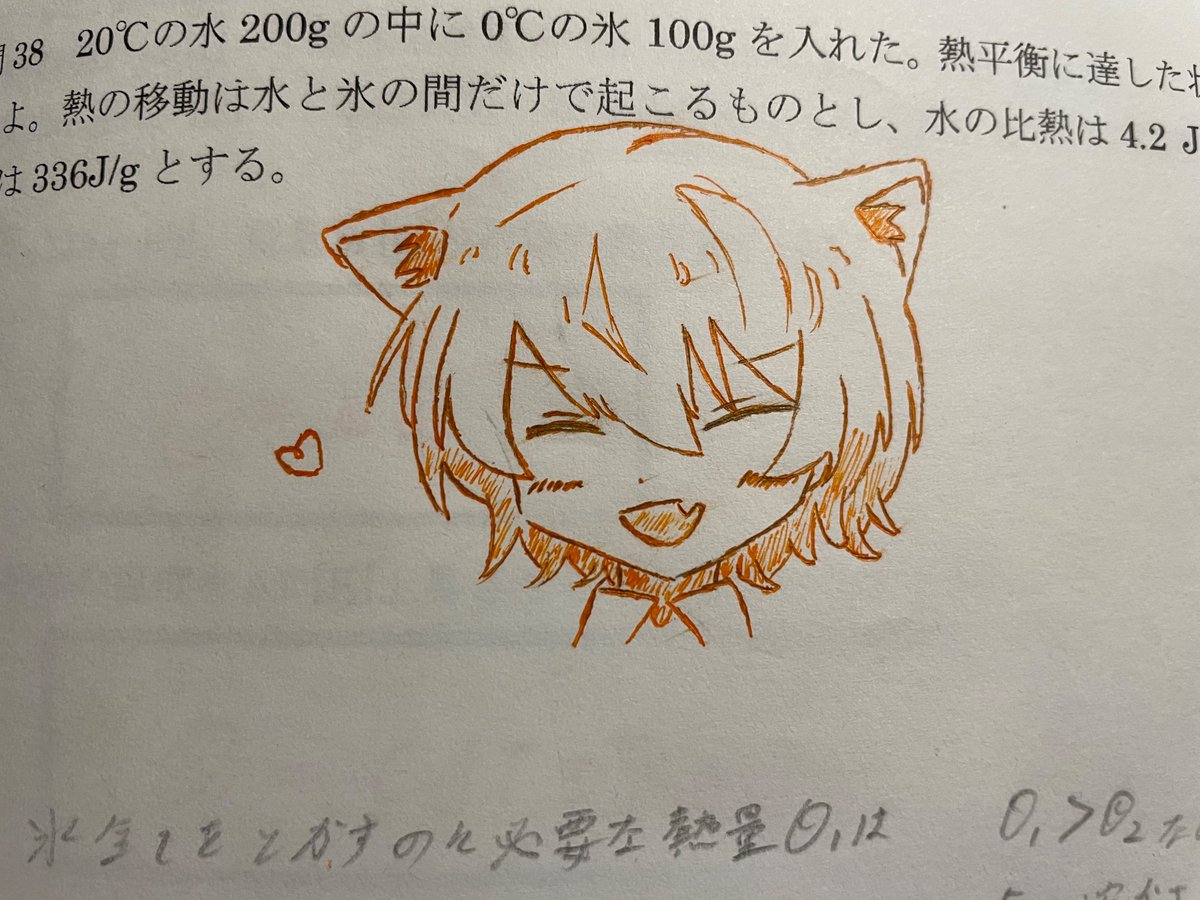 問38 20℃の水 200g の中に 0℃の氷 100g を入れた。熱平衡に達した状
よ。熱の移動は水と氷の間だけで起こるものとし、水の比熱は 4.2 J
は 336J/g とする。
氷全てをとかすのに必要な熱量Q₁は
Q₁>Q₂ だ